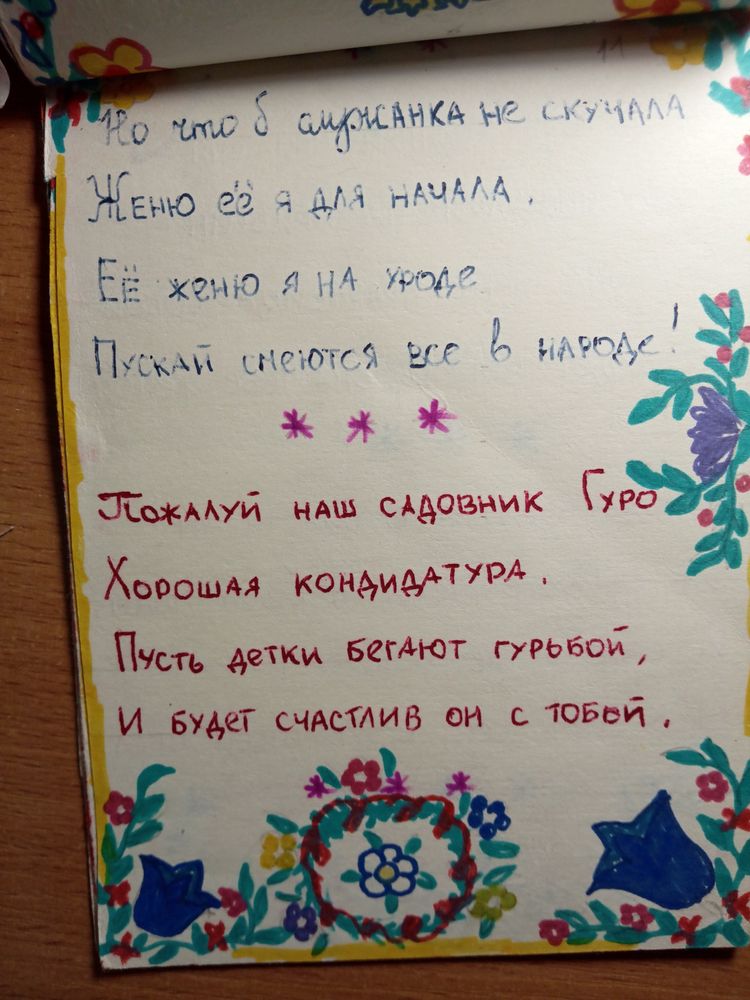 11
Но что б служанка не скучала
Женю её я для начала.
Её женю я на уроде
Пускай смеются все в народе!
* * *
Пожалуй наш садовник Гуро
Хорошая кондидатура.
Пусть детки бегают гурьбой,
И будет счастлив он с тобой.